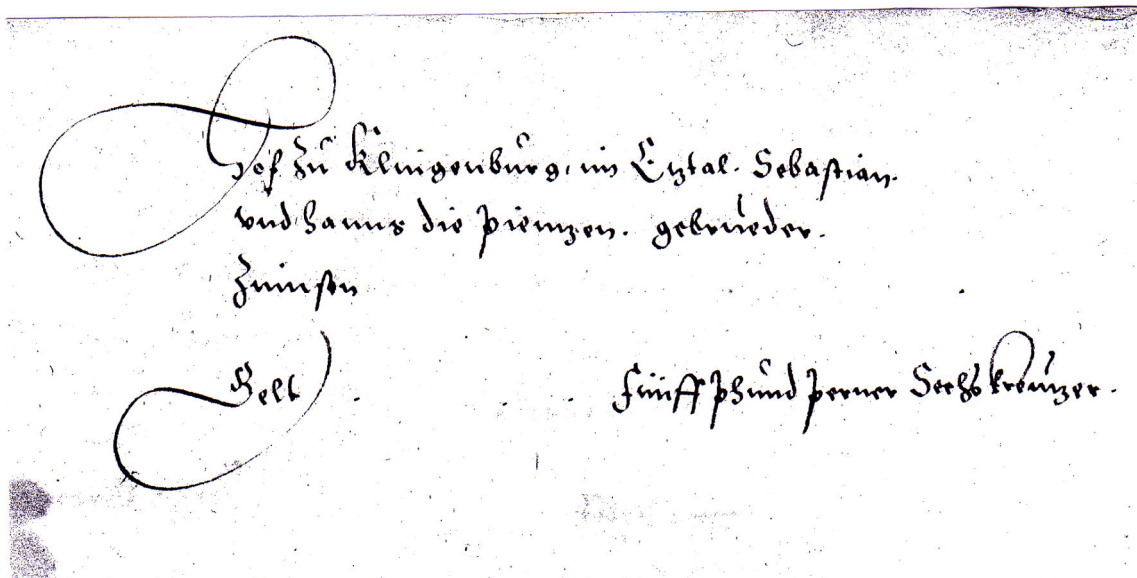 Hof zu Klingenburg, im Eytal. Sebastian.
vnd Hanns die Pienzen. gebrueder.
Zinnsen
Gelt . . . . Fünff Phund Perner Sechs kreutzer.